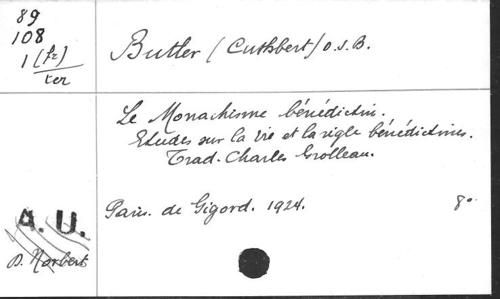 89
108
1 (fr)
ter
Butler (Cuthbert) O.S.B.
Le Monachisme bénédictin.
Etudes sur la vie et la règle bénédictines.
Trad. Charles Grolleau.
Paris. de Gigord. 1924. 8°
A. U.
D. Norbert